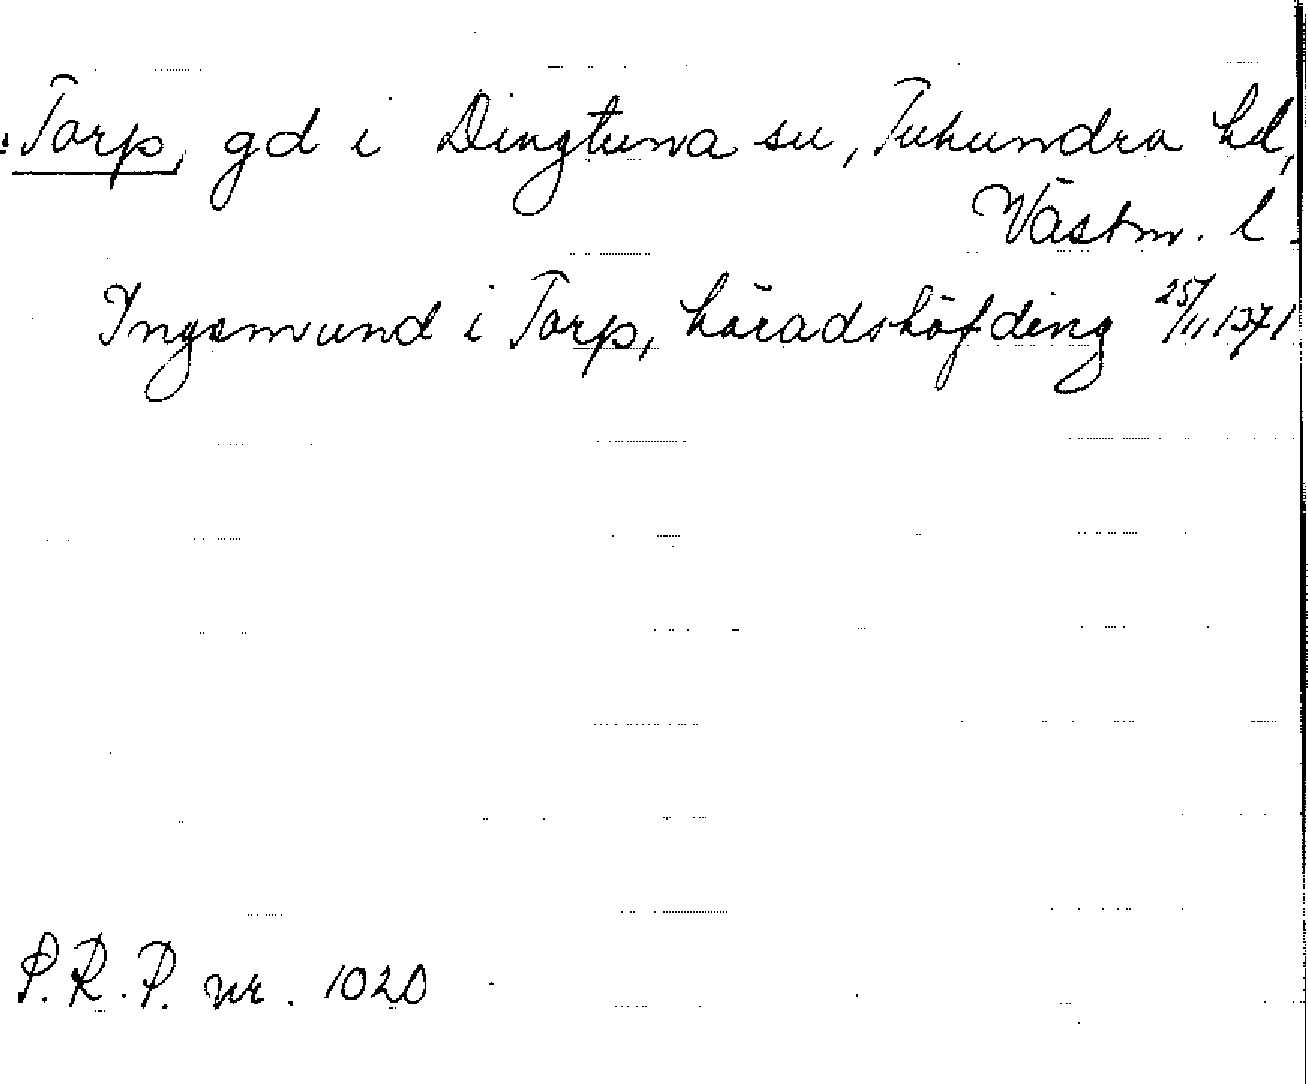 : Torp, gd i Dingtuna sn, Tuhundra hd,
Västm. l.
Ingemund i Torp, häradshöfding 25/11 1371
P.R.P. nr. 1020